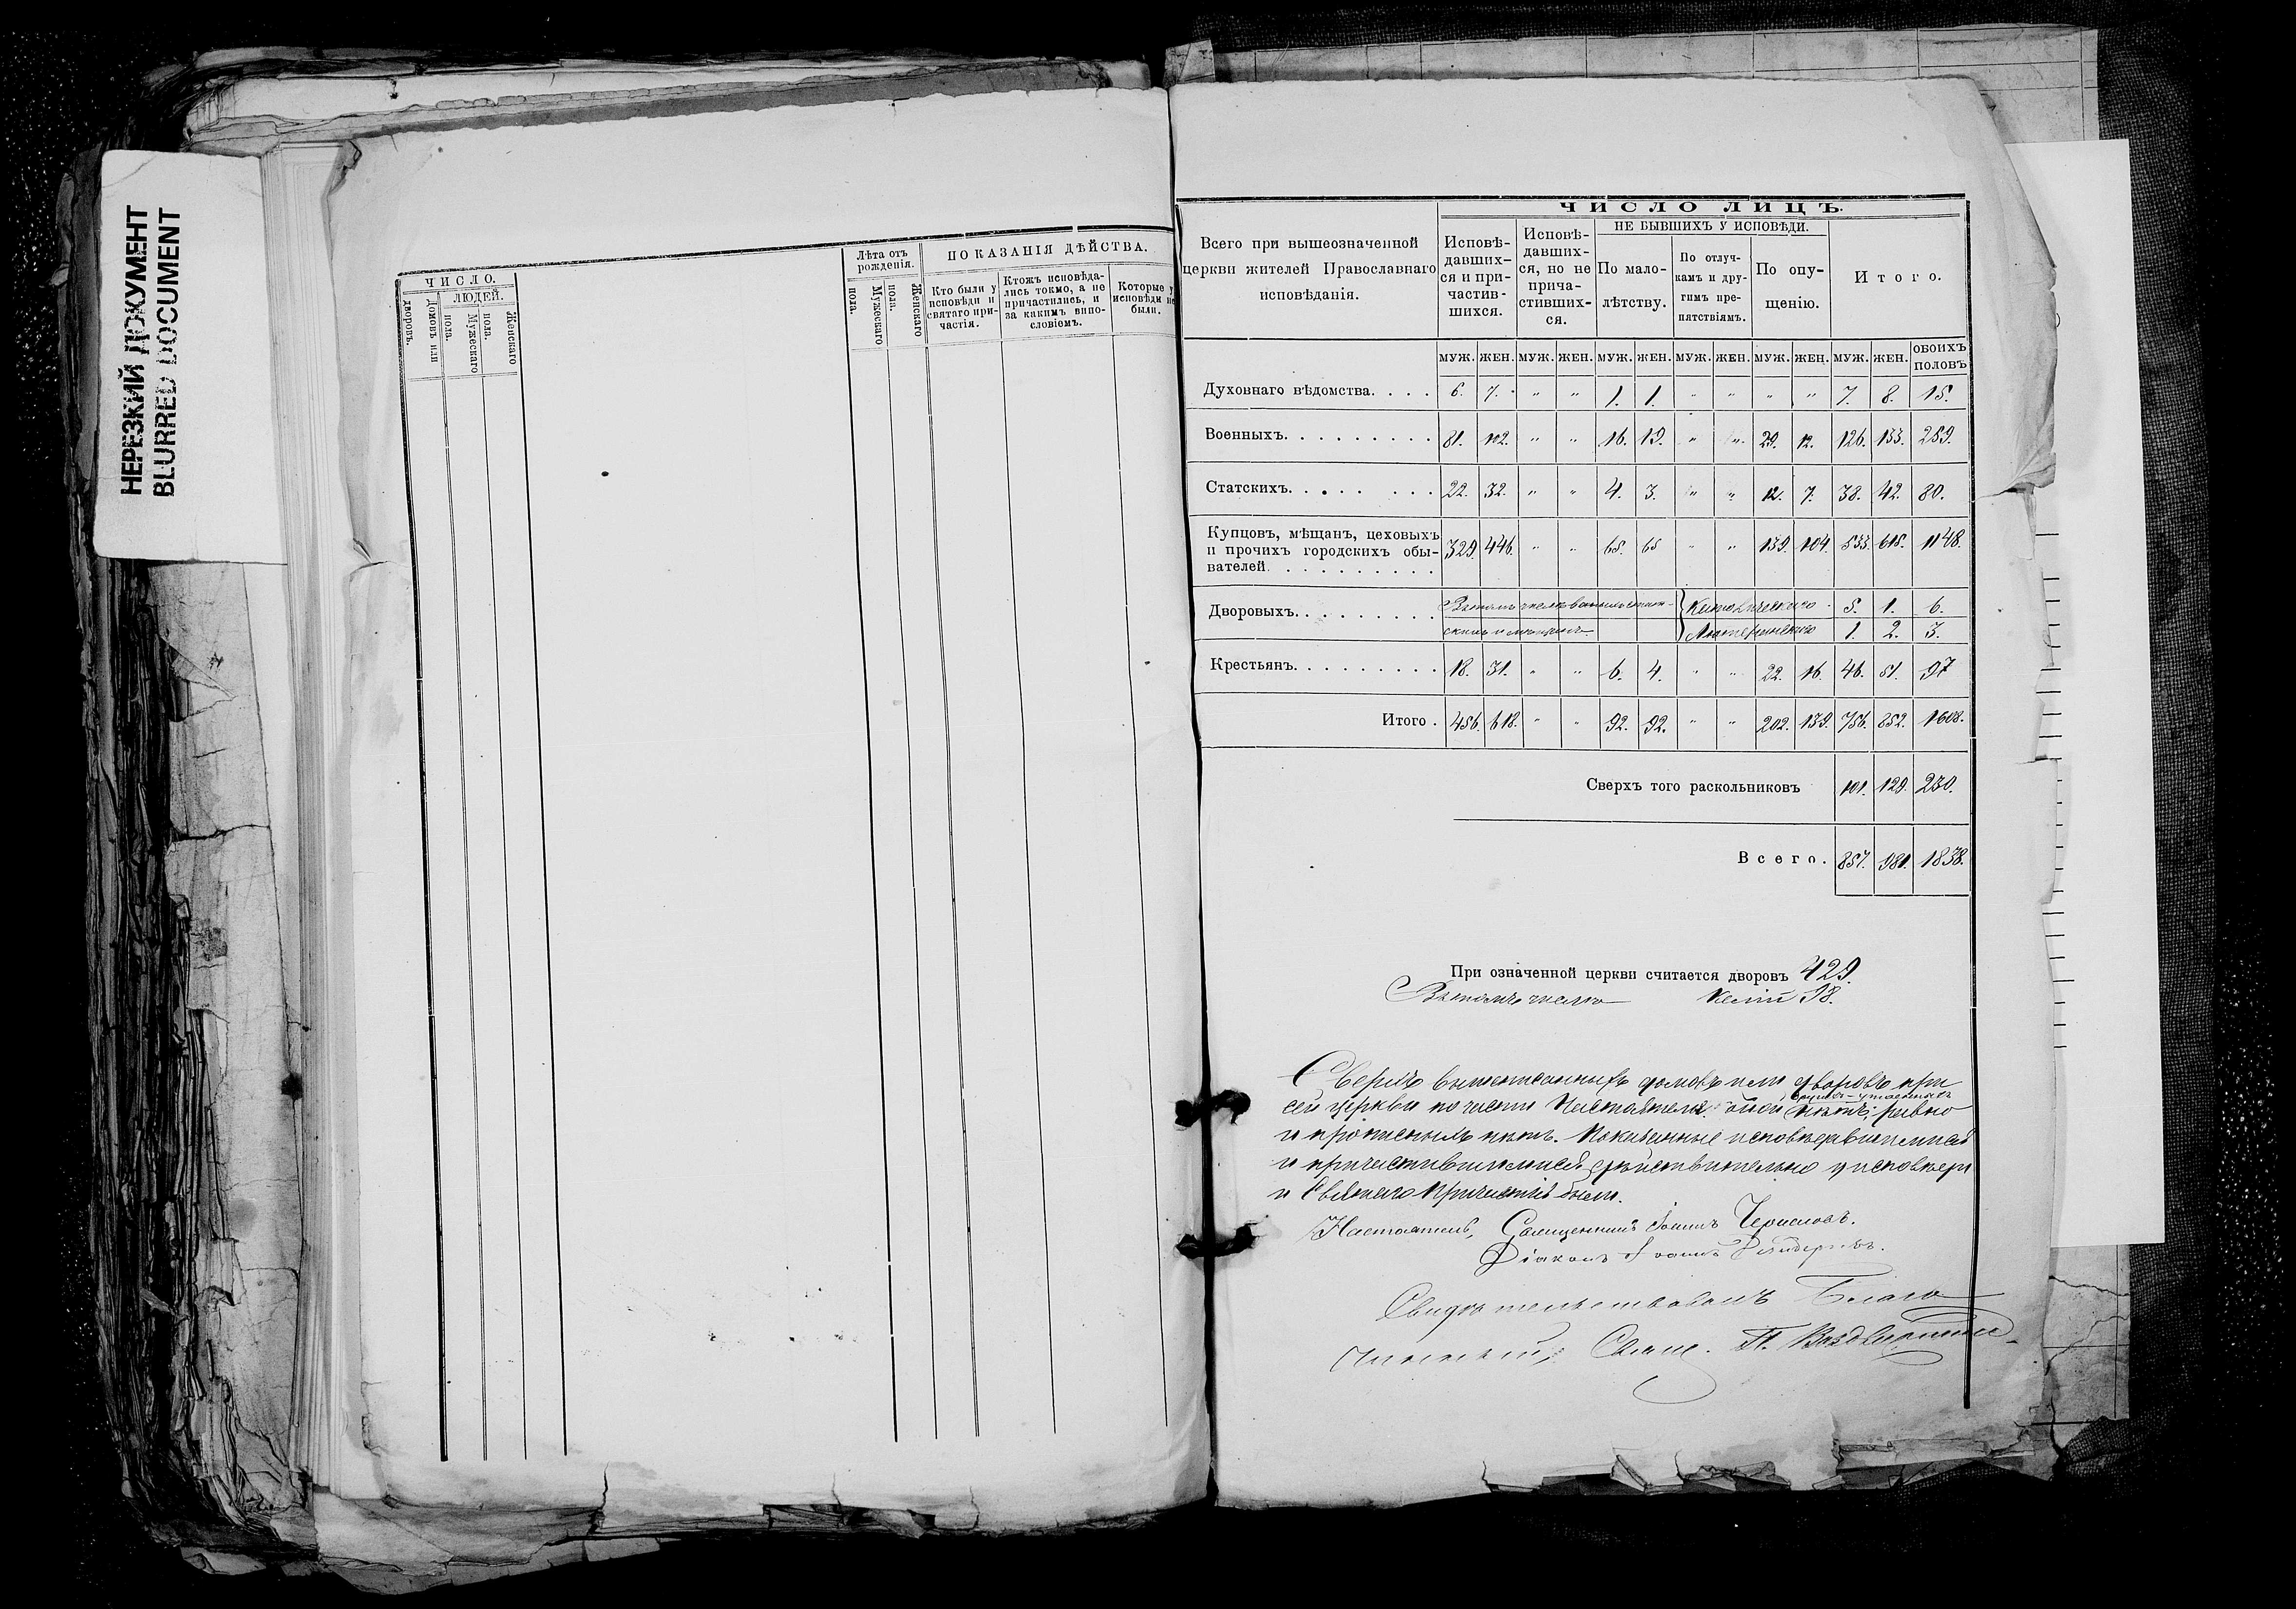 НЕРЕЗКИЙ ДОКУМЕНТ
BLURRED DOCUMENT
ЧИСЛО.
Домовъ или дворовъ.
ЛЮДЕЙ.
Мужескаго пола.
Женскаго пола.
Лѣта отъ рожденія.
Мужескаго пола.
Женскаго пола.
ПОКАЗАНІЯ ДѢЙСТВА.
Кто были у исповѣди и святаго причастія.
Ктожъ исповѣдались токмо, а не причастились, и за какимъ виносло­віемъ.
Которые у исповѣди не были.
Всего при вышеозначенной
церкви жителей Православнаго
исповѣданія.
ЧИСЛО ЛИЦЪ.
Исповѣ-
давших-
ся и при-
частив-
шихся.
Исповѣ-
давших-
ся, но не
прича-
стивших-
ся.
НЕ БЫВШИХЪ У ИСПОВѢДИ.
По мало-
лѣтству.
По отлуч-
камъ и дру-
гимъ пре-
пятствіямъ.
По опу-
щенію.
Итого.
муж. жен. муж. жен. муж. жен. муж. жен. муж. жен. муж. жен. обоихъ половъ
Духовнаго вѣдомства. . . . 6. 7. " " 1. 1. " " " " 7. 8. 15.
Военныхъ. . . . . . . . . 81. 102. " " 16. 19. " " 29. 12. 126. 133. 259.
Статскихъ. . . . . . . . 22. 32. " " 4. 3. " " 12. 7. 38. 42. 80.
Купцовъ, мѣщанъ, цеховыхъ
и прочихъ городскихъ обы-
вателей. . . . . . . . . . 329. 446. " " 65. 65 " " 139. 104. 533. 615. 1148.
Дворовыхъ. . . . . . . . Въ томъ числѣ Католическаго 5. 1. 6.
Лютеранскаго 1. 2. 3.
Крестьянъ. . . . . . . . . 18. 31. " " 6. 4. " " 22. 16. 46. 51. 97
Итого. 456. 618. " " 92. 92. " " 202. 139. 756. 852. 1608.
Сверхъ того раскольниковъ 101. 129. 230.
Всего. 857. 981. 1838.
При означенной церкви считается дворовъ 429.
Въ томъ числѣ келій 98.
Сверхъ вышеписанныхъ домовъ или дворовъ при
сей церкви по части Настоятеля нѣтъ; равно
и прописныхъ нѣтъ. Показанные исповѣдавшимися
и причастившимися дѣйствительно у исповѣди
и Святаго Причастія были.
Настоятель, Священникъ Іоаннъ
Діаконъ Іоаннъ
Свидѣтельствовалъ Благо
чинный, Свящ. П. Воздвиженскій